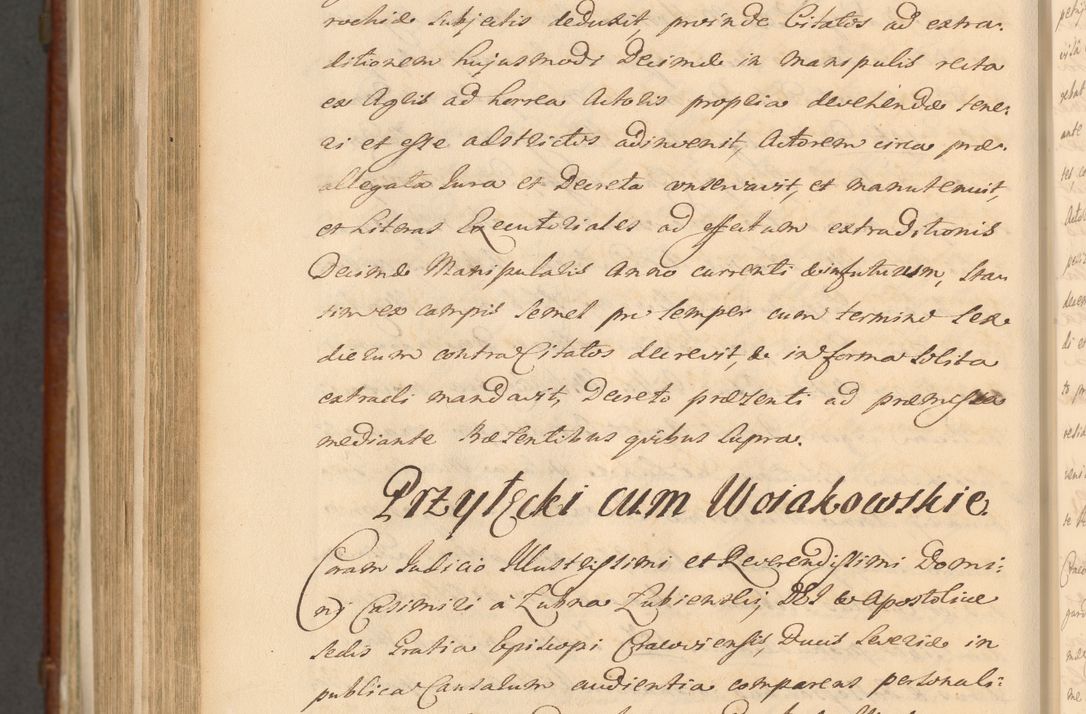 rochiæ Subjectis deduxit, proinde Citatos ad extra-
ditionem hujusmodi Decimæ in Manipulis recta
ex Agris ad horrea Actoris propria devehendæ tene-
ri et esse adstrictos adinvenit, Actorem circa præ-
allegata Jura et Decreta conservavit, et manutenuit,
et Literas Executoriales ad effectum extraditionis
Decimæ Manipularis Anno currenti & in futurum, sta-
tim ex campis semel pro semper cum termino sex
dierum contra Citatos decrevit, & in forma solita
extradi mandavit, Decreto præsenti ad præmissa
mediante Præsentibus quibus supra.
Przyłęcki cum Woiakowskie.
Coram Judicio Illustrissimi et Reverendissimi Domi-
ni Casimiri à Łubna Łubienski, DEI & Apostolicæ
Sedis Gratia Episcopi Cracoviensis, Ducis Severiæ in
publica Causarum audientia comparens personali-